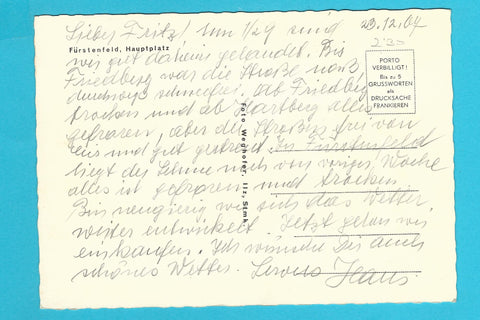 23.12.64
Lieber Fritz! Um 1/29 sind
Fürstenfeld, Hauptplatz
wir gut daheim gelandet. Bis
Friedberg war die Straße naß
durchwegs schneefrei. Ab Friedberg
trocken und ab Hartberg alles
gefroren, aber die Straße frei von
Eis und gut gestreut. In Fürstenfeld
liegt der Schnee noch von voriger Woche
alles ist gefroren und trocken
Bin neugierig wie sich das Wetter
weiter entwickelt. Jetzt gehen wir
einkaufen. Ich wünsche Dir auch
schönes Wetter. Servus Hans.
PORTO
VERBILLIGT!
Bis zu 5
GRUSSWORTEN
als
DRUCKSACHE
FRANKIEREN
Foto Weghofer, Ilz, Stmk.